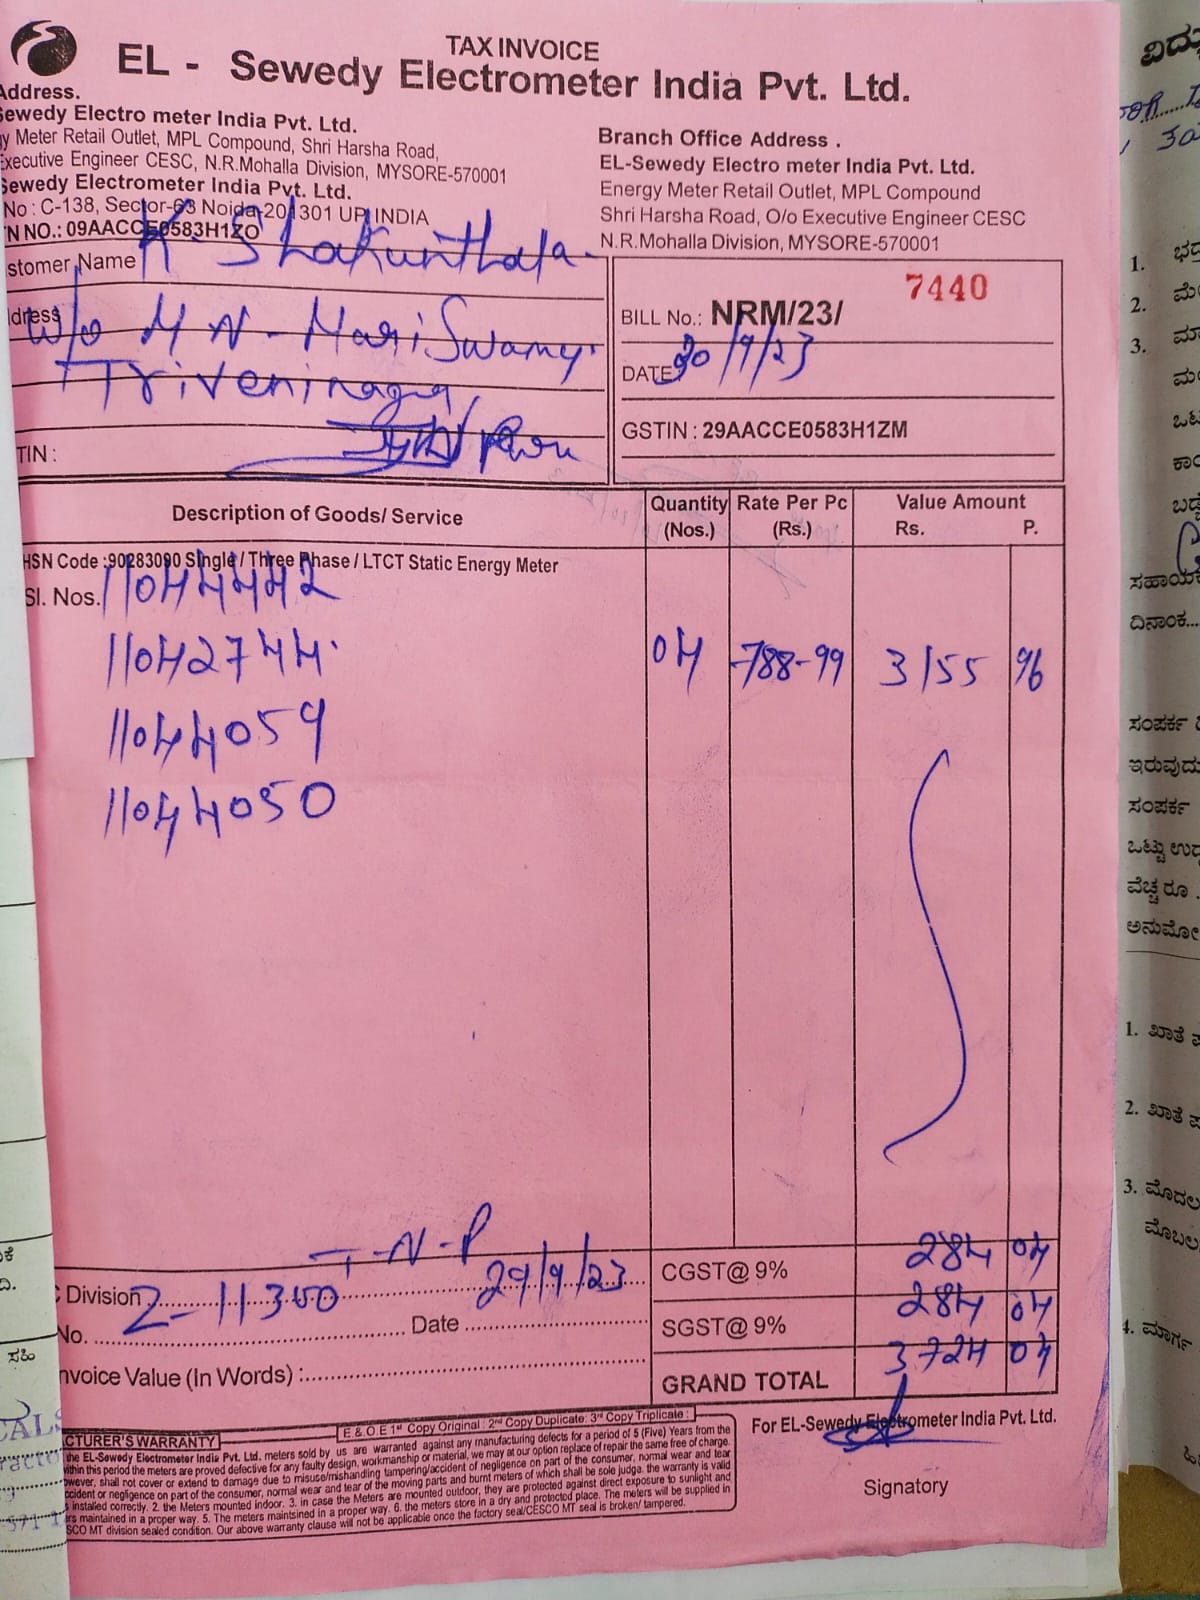 TAX INVOICE
EL - Sewedy Electrometer India Pvt. Ltd.
Address.
Sewedy Electro meter India Pvt. Ltd.
gy Meter Retail Outlet, MPL Compound, Shri Harsha Road,
Executive Engineer CESC, N.R.Mohalla Division, MYSORE-570001
Sewedy Electrometer India Pvt. Ltd.
No : C-138, Sector-63 Noida-201301 UP, INDIA
TN NO.: 09AACCE0583H1ZO
Branch Office Address .
EL-Sewedy Electro meter India Pvt. Ltd.
Energy Meter Retail Outlet, MPL Compound
Shri Harsha Road, O/o Executive Engineer CESC
N.R.Mohalla Division, MYSORE-570001
stomer Name K. Shakunthala.
dress W/o M N - Mari Swamy.
Triveninagar,
TIN :
7440
BILL No.: NRM/23/
DATE 30/9/23
GSTIN : 29AACCE0583H1ZM
Description of Goods/ Service Quantity (Nos.) Rate Per Pc (Rs.) Value Amount Rs. P.
HSN Code :90283090 Single / Three Phase / LTCT Static Energy Meter
Sl. Nos. 11044442
11042744 04 788-99 3155 96
11044059
11044050
T.N.P
C Division Z-11300 29/9/23
No. Date
CGST@ 9% 284 04
SGST@ 9% 284 04
nvoice Value (In Words) :
GRAND TOTAL 3724 04
E & O.E 1st Copy Original : 2nd Copy Duplicate: 3rd Copy Triplicate :
CTURER'S WARRANTY
the EL-Sewedy Electrometer India Pvt. Ltd. meters sold by us are warranted against any manufacturing defects for a period of 5 (Five) Years from the
ithin this period the meters are proved defective for any faulty design, workmanship or material, we may at our option replace of repair the same free of charge.
owever, shall not cover or extend to damage due to misuse/mishandling tampering/accident of negligence on part of the consumer, normal wear and tear
ccident or negligence on part of the consumer, normal wear and tear of the moving parts and burnt meters of which shall be sole judge. the warranty is valid
installed correctly. 2. the Meters mounted indoor. 3. in case the Meters are mounted outdoor, they are protected against direct exposure to sunlight and
rs maintained in a proper way. 5. The meters maintsined in a proper way. 6. the meters store in a dry and protected place. The meters will be supplied in
SCO MT division sealed condition. Our above warranty clause will not be applicable once the factory seal/CESCO MT seal is broken/ tampered.
For EL-Sewedy Electrometer India Pvt. Ltd.
Signatory
1.
2.
3.
ದಿನಾಂಕ...
ಸಂಪರ್ಕ
ಇರುವುದು
ಸಂಪರ್ಕ
ವೆಚ್ಚ ರೂ .
1. ಖಾತೆ
2. ಖಾತೆ
3. ಮೊದಲ
4. ಮಾರ್ಗ
ಸಹಿ